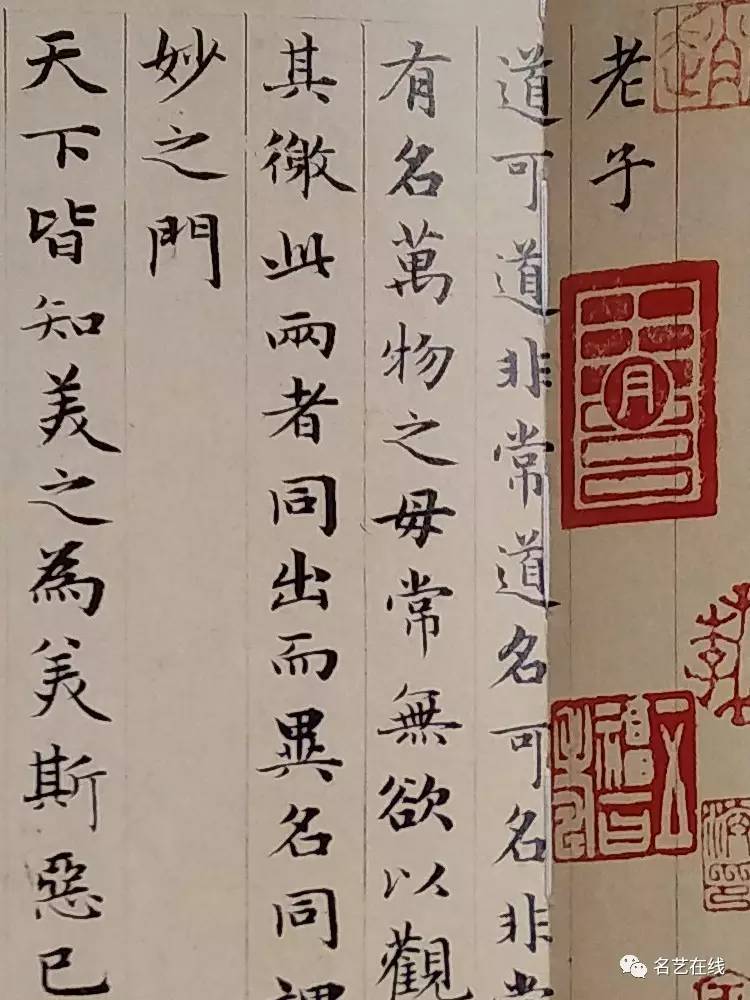 老子
道可道非常道名可名非常
有名萬物之母常無欲以觀
其徼此兩者同出而異名同謂
妙之門
天下皆知美之為美斯惡已
名艺在线